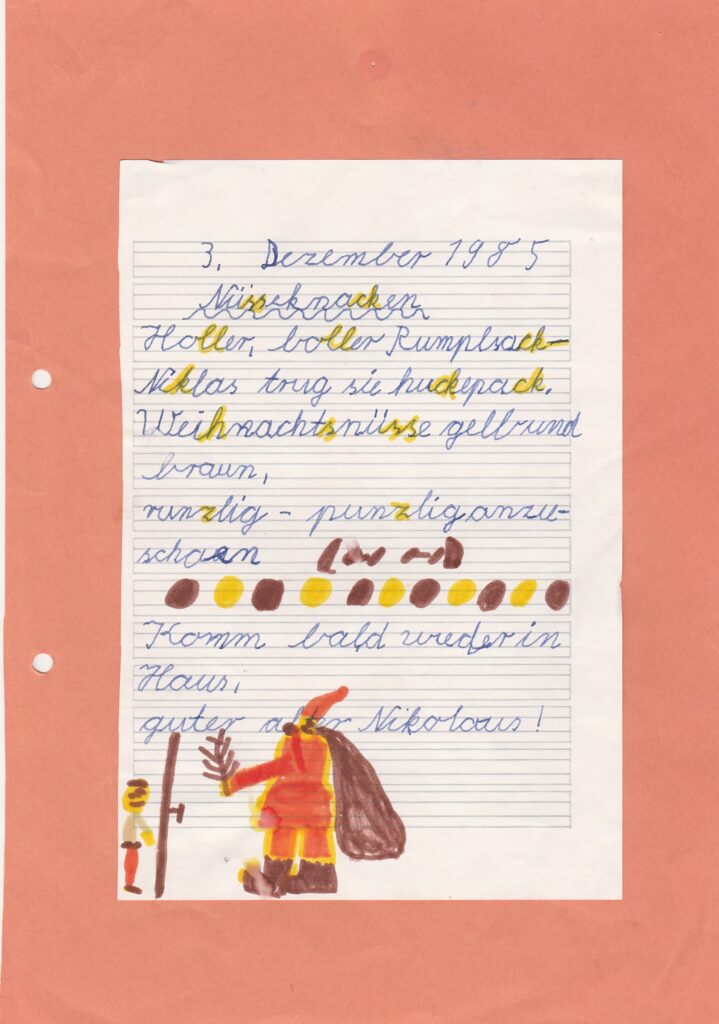 3. Dezember 1985
Nüsseknacken
Holler, boller Rumplsack-
Niklas trug sie huckepack.
Weihnachtsnüsse gelb und
braun,
runzlig - punzlig anzu-
schaen
Komm bald wieder in
Haus,
guter alter Nikolaus!